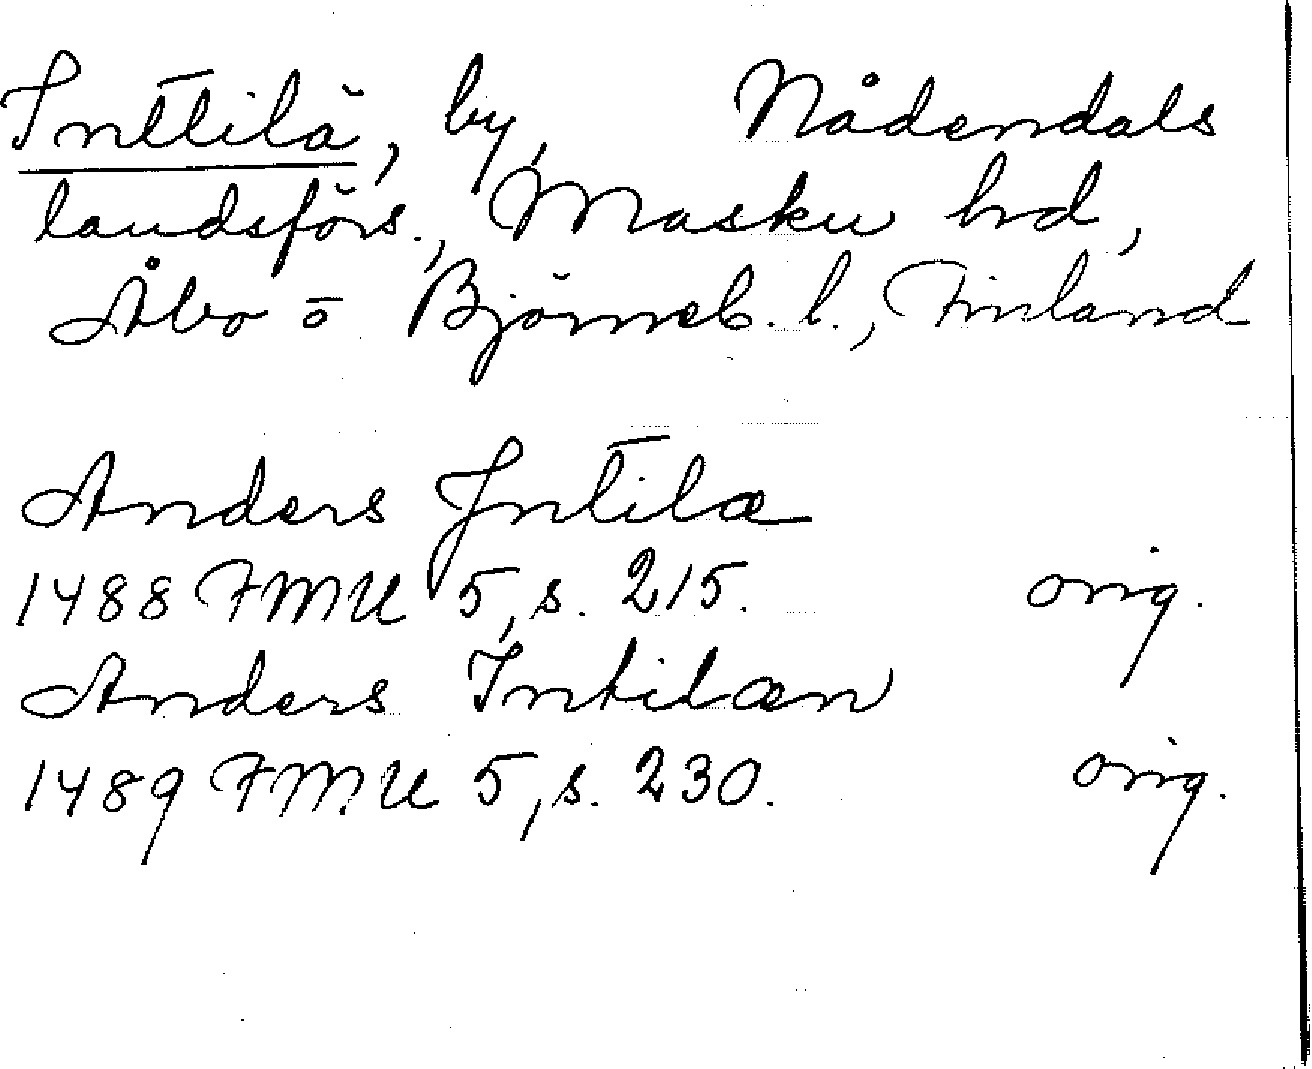 Inttilä, by, Nådendals
landsförs., Masku hd,
Åbo o Björneb. l., Finland
Anders Jntilæ
1488 FMU 5, s. 215. orig.
Anders Intilæn
1489 FMU 5, s. 230. orig.